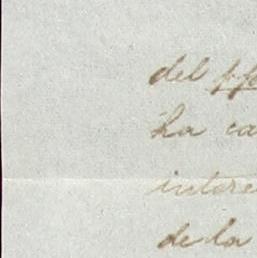 del
ha ca
intere
de la